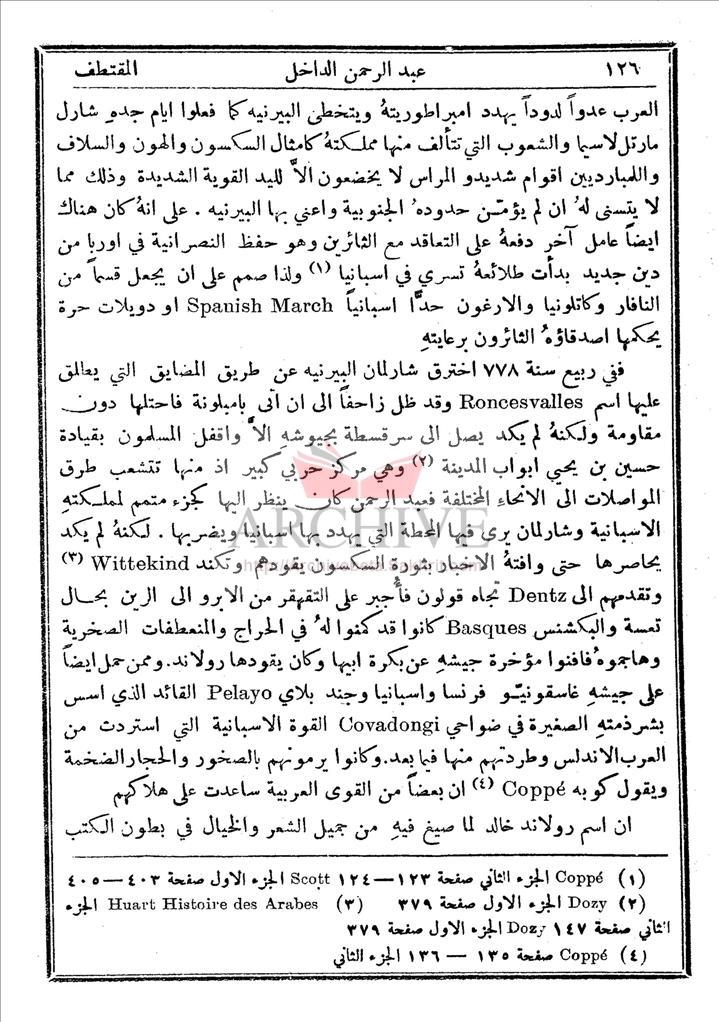 ١٢٦ عبد الرحمن الداخل المقتطف
العرب عدواً لدوداً يهدد امبراطوريتهُ ويتخطى البيرنيه كما فعلوا ايام جده شارل
مارتل لاسيما والشعوب التي تتألف منها مملكتهُ كامثال السكسون والهون والسلاف
واللمبارديين اقوام شديدو المراس لا يخضعون الاَّ لليد القوية الشديدة وذلك مما
لا يتسنى لهُ ان لم يؤمـّـن حدودهُ الجنوبية واعني بها البيرنيه . على انهُ كان هناك
ايضاً عامل آخر دفعهُ على التعاقد مع الثائرين وهو حفظ النصرانية في اوربا من
دين جديد بدأت طلائعهُ تسري في اسبانيا (١) ولذا صمم على ان يجعل قسماً من
النافار وكاتلونيا والارغون حدًّا اسبانياً Spanish March او دويلات حرة
يحكمها اصدقاؤهُ الثائرون برعايتهِ
ففي ربيع سنة ٧٧٨ اخترق شارلمان البيرنيه عن طريق المضايق التي يطلق
عليها اسم Roncesvalles وقد ظل زاحفاً الى ان آتى بامبلونة فاحتلها دون
مقاومة ولكنهُ لم يكد يصل الى سرقسطة بجيوشهِ الاَّ واقفل المسلمون بقيادة
حسين بن يحيى ابواب المدينة (٢) وهي مركز حربي كبير اذ منها تتشعب طرق
المواصلات الى الانحاء المختلفة فعبد الرحمن كان ينظر اليها كجزء متمم لمملكتهِ
الاسبانية وشارلمان يرى فيها المحطة التي يهدد بها اسبانيا ويضربها . لكنهُ لم يكد
يحاصرها حتى وافتهُ الاخبار بثورة السكسون يقودهم وتكند Wittekind (٣)
وتقدمهم الى Dentz تجاه قولون فأُجبر على التقهقر من الابرو الى الرين بحال
تعسة والبكشنس Basques كانوا قد كمنوا لهُ في الحراج والمنعطفات الصخرية
وهاجموهُ فافنوا مؤخرة جيشهِ عن بكرة ابيها وكان يقودها رولاند. وممن حمل ايضاً
على جيشهِ غاسقونيّو فرنسا واسبانيا وجند بلاي Pelayo القائد الذي اسس
بشرذمتهِ الصغيرة في ضواحي Covadongi القوة الاسبانية التي استردت من
العرب الاندلس وطردتهم منها فيما بعد. وكانوا يرمونهم بالصخور والحجار الضخمة
ويقول كوبه Coppé (٤) ان بعضاً من القوى العربية ساعدت على هلاكهم
ان اسم رولاند خالد لما صيغ فيهِ من جميل الشعر والخيال في بطون الكتب
ARCHIVE
(١) Coppé الجزء الثاني صفحة ١٢٣—١٢٤ Scott الجزء الاول صفحة ٤٠٣—٤٠٥
(٢) Dozy الجزء الاول صفحة ٣٧٩ (٣) Huart Histoire des Arabes الجزء
الثاني صفحة ١٤٧ Dozy الجزء الاول صفحة ٣٧٩
(٤) Coppé صفحة ١٣٥ — ١٣٦ الجزء الثاني